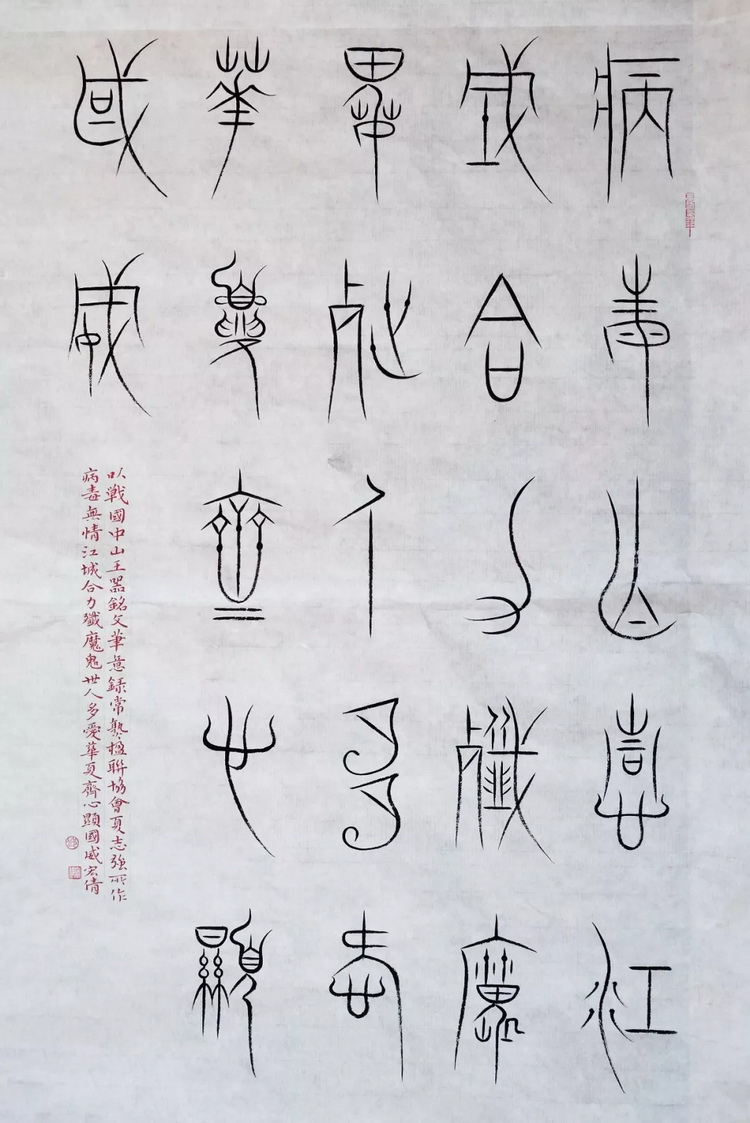 病毒無情江
城合力殲魔
鬼世人多愛
華夏齊心顯
國威
以戰國中山王器銘文筆意錄常熟楹聯協會夏志強所作
病毒無情江城合力殲魔鬼世人多愛華夏齊心顯國威宏倩